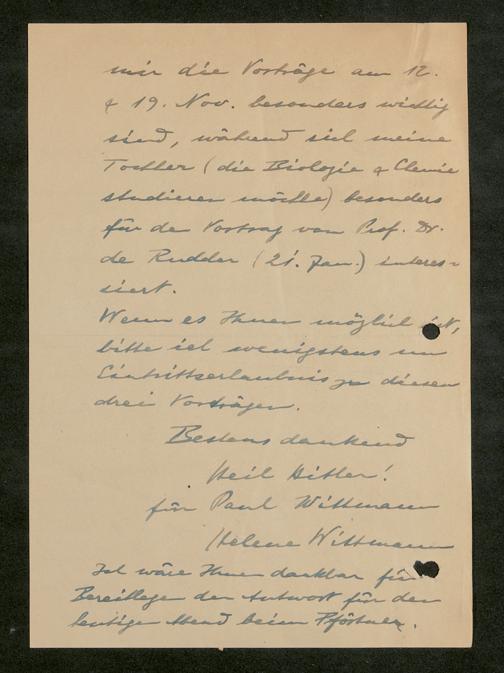 mir die Vorträge am 12.
& 19. Nov. besonders wichtig
sind, während sich meine
Tochter (die Biologie & Chemie
studieren möchte) besonders
für den Vortrag von Prof. Dr.
de Rudder (21. Jan.) interes-
siert.
Wenn es Ihnen möglich ist,
bitte ich wenigstens um
Eintrittserlaubnis zu diesen
drei Vorträgen.
Bestens dankend
Heil Hitler!
für Paul Wittmann
Helene Wittmann
Ich wäre Ihnen dankbar für
Bereitlegen der Antwort für den
heutigen Abend beim Pförtner.